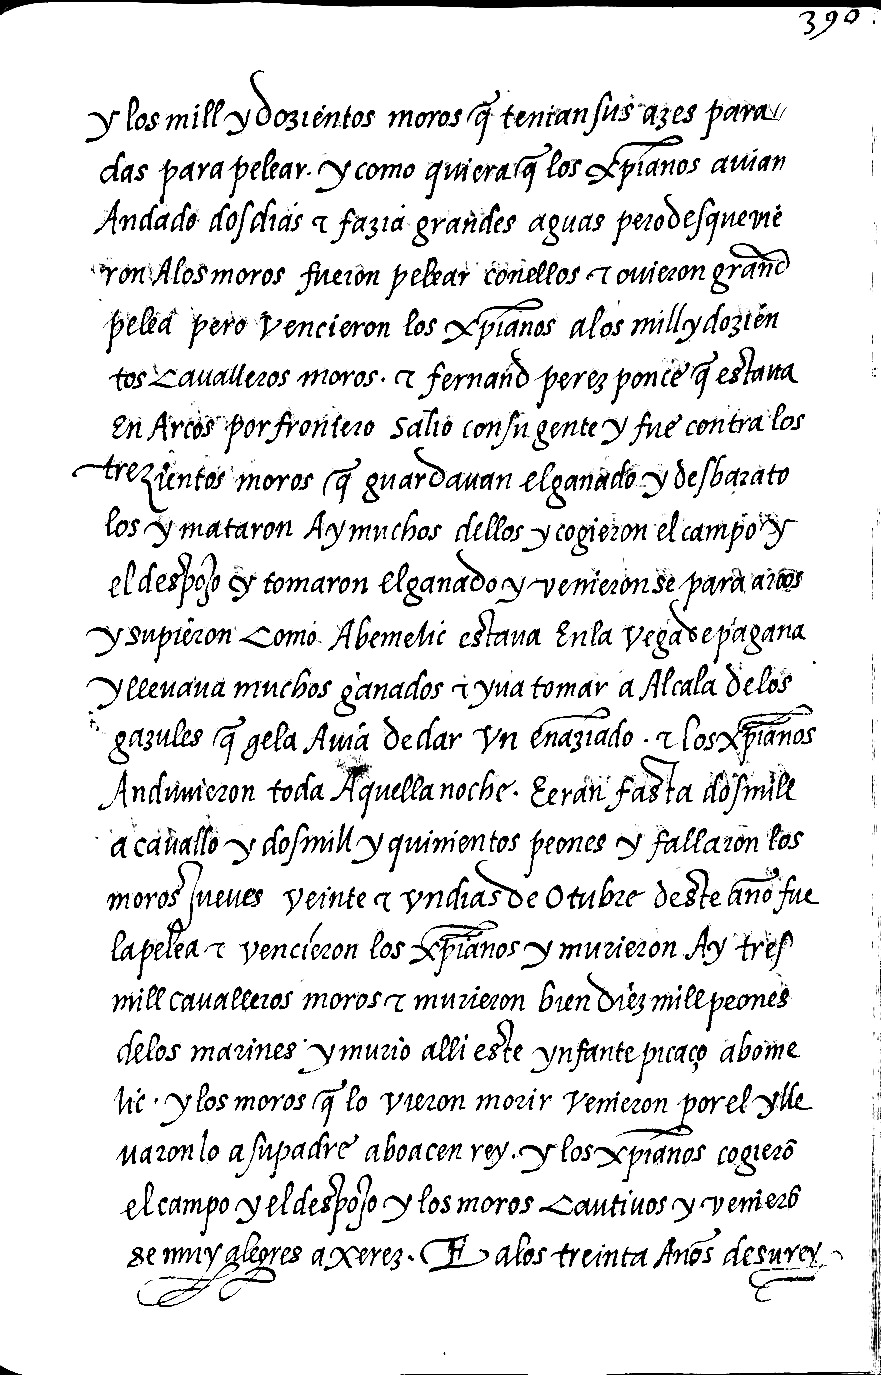 390
y los mill y dozientos moros q̃ tenian sus azes para
das para pelear. y como quiera q̃ los xp̃ianos auian
Andado dos dias ⁊ fazia grandes aguas pero desque vinẽ
ron A los moros fueron pelear con ellos ⁊ ouieron grand
pelea pero vencieron los xp̃ianos a los mill y dozien
tos Caualleros moros. ⁊ fernand perez ponce q̃ estaua
En Arcos por frontero salio con su gente y fue contra los
trezientos moros q̃ guardauan el ganado y desbarato
los y mataron Ay muchos dellos y cogieron el campo y
el despojo y tomaron el ganado y venieron se para arcos
y supieron Como Abemelic estaua En la vega de pagana
y lleuaua muchos ganados ⁊ yua tomar a Alcala de los
gazules q̃ gela Auia de dar vn enaziado. ⁊ los xp̃ianos
Anduuieron toda Aquella noche. E eran fasta dos mill
a cauallo y dos mill y quinientos peones y fallaron los
moros jueues veinte ⁊ vn dias de Otubre deste año fue
la pelea ⁊ vencieron los xp̃ianos y murieron Ay tres
mill caualleros moros ⁊ murieron bien diez mill peones
de los marines y murio alli este ynfante picaço abome
lic. y los moros q̃ lo vieron morir venieron por el y lle
uaron lo a su padre aboacen rey. y los xp̃ianos cogierõ
el campo y el despojo y los moros Cautiuos y venierõ
se muy alegres a xerez. E a los treinta Años de su rey